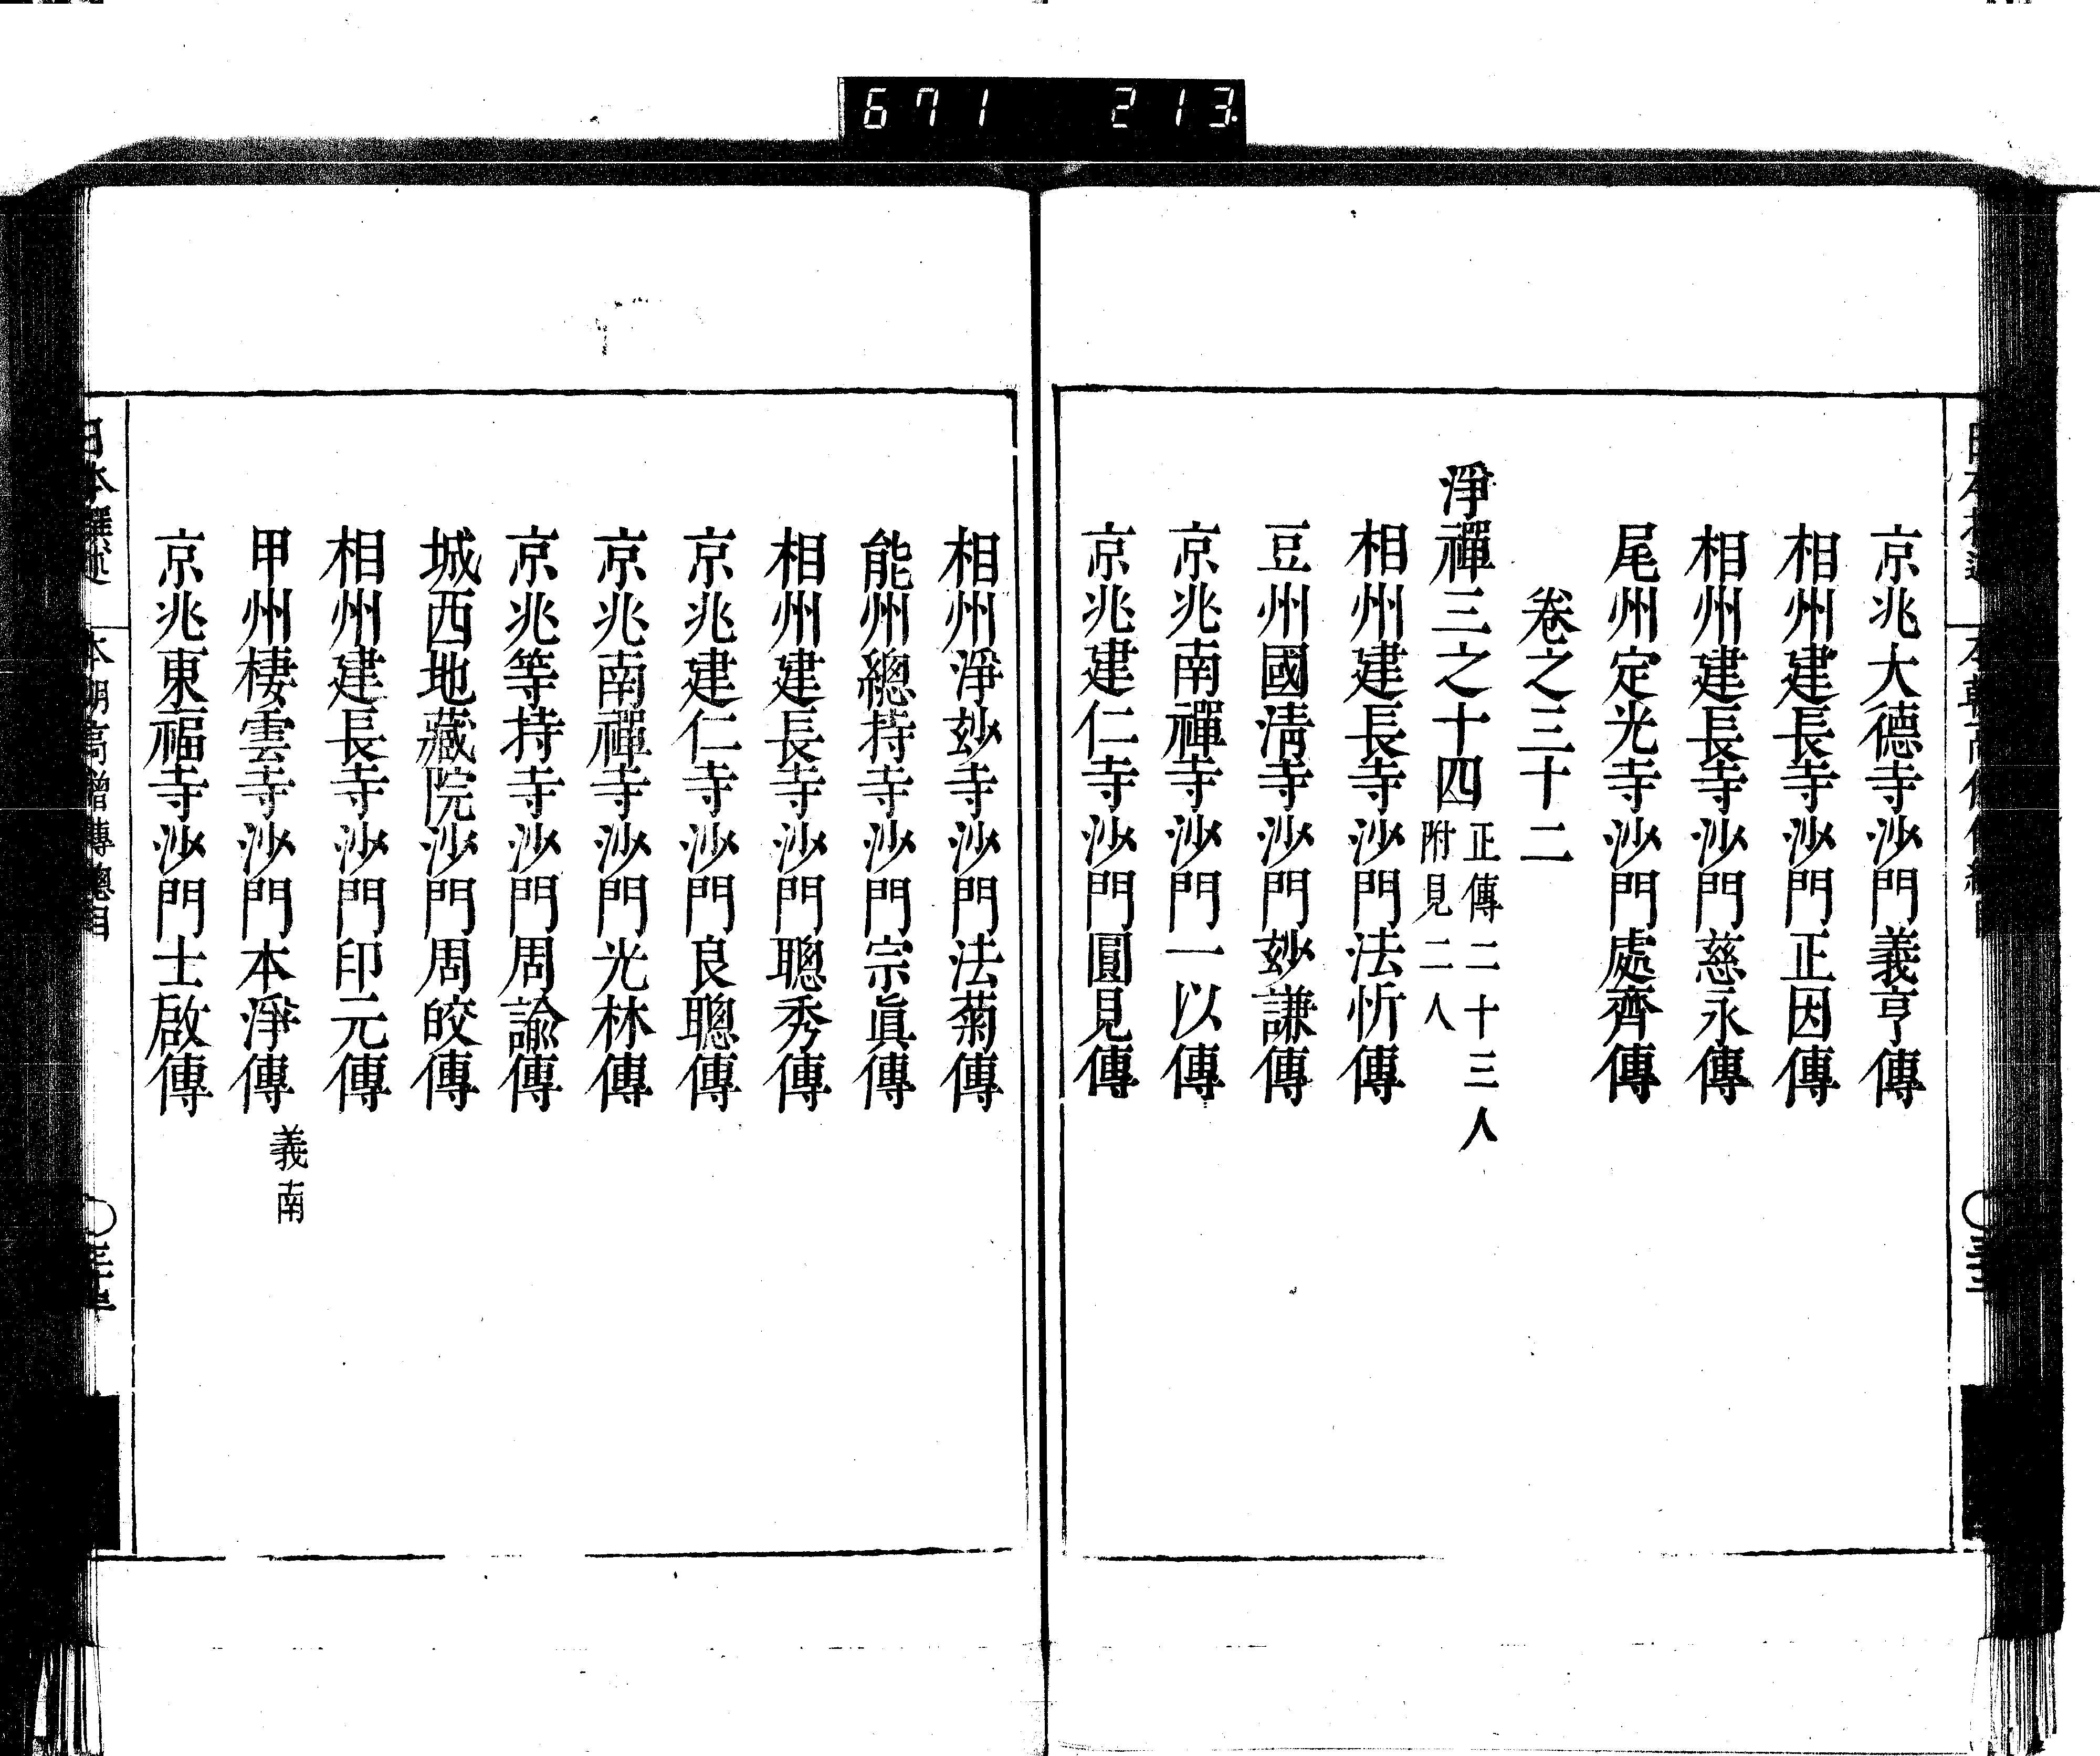 671 213.
京兆大德寺沙門義亨傳
相州建長寺沙門正因傳
相州建長寺沙門慈永傳
尾州定光寺沙門處齊傳
卷之三十二
淨禪三之十四
正傳二十三人
附見二人
相州建長寺沙門法忻傳
豆州國清寺沙門妙謙傳
京兆南禪寺沙門一以傳
京兆建仁寺沙門圓見傳
相州淨玅寺沙門法菊傳
能州總持寺沙門宗眞傳
相州建長寺沙門聰秀傳
京兆建仁寺沙門良聰傳
京兆南禪寺沙門光林傳
京兆等持寺沙門周諭傳
城西地藏院沙門周皎傳
相州建長寺沙門印元傳
甲州棲雲寺沙門本淨傳
義南
京兆東福寺沙門士啟傳
日本撰述 本朝高僧傳總目